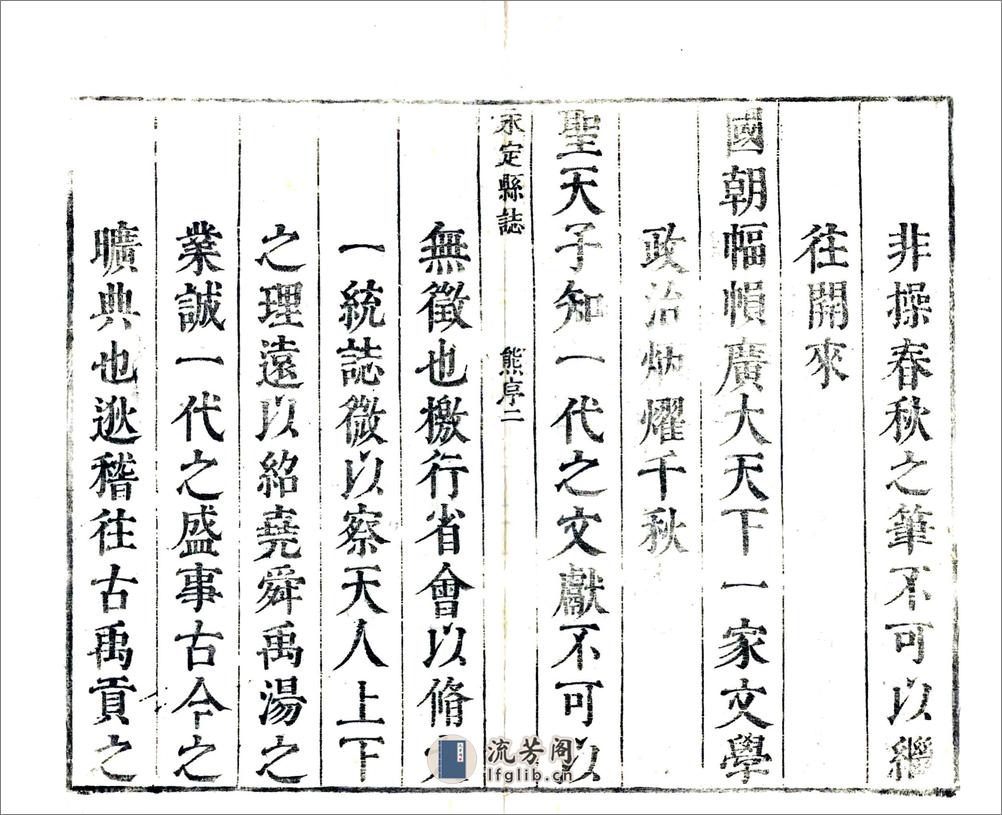 非操春秋之筆不可以繼
往開來
國朝幅幀廣大天下一家文學
政治炳耀千秋
聖天子知一代之文獻不可以
永定縣誌 熊序二
無徵也檄行省會以脩
一統誌微以察天人上下
之理遠以紹堯舜禹湯之
業誠一代之盛事古今之
曠典也逖稽往古禹貢之
流芳阁
lfglib.cn